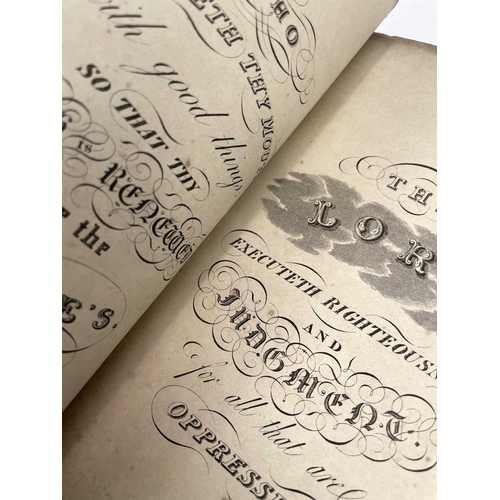 HO
ETH THY MOU
with good things
SO THAT THY
IS
RENEWE
the
E'S.
TH
LOR
EXECUTETH RIGHTEOUSN
AND
JUDGMENT
for all that are
OPPRESS